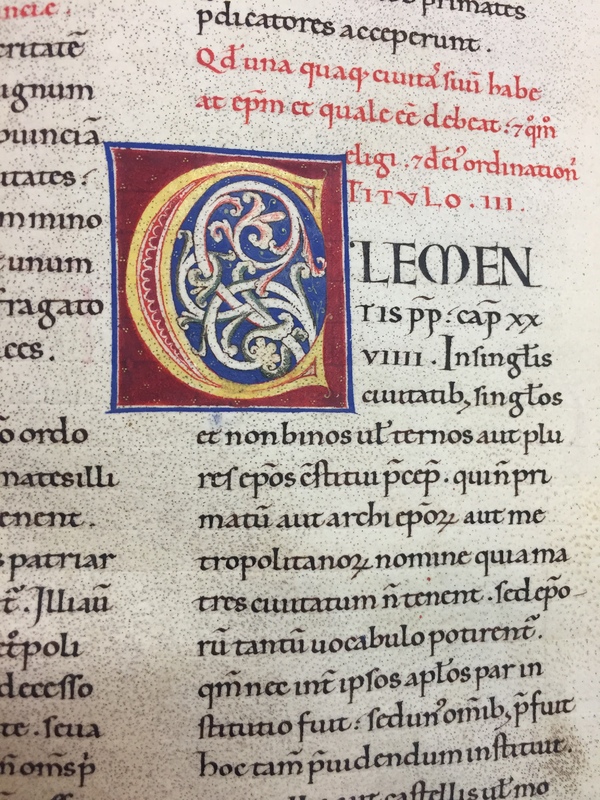 ncie.
eritatē
ignum
ouinciā
itates:
mmino
unum
fragato
eces.
ō ordo
matesilli
enent.
s patriar
Illiaū
decesso
te. seua
primates
p̄dicatores acceperunt.
Qd̄ una quaq; ciuitaſ suū habe
at ep̄m et quale eē debeat. ⁊ qm̄
eligi. ⁊ dei ordination̄
TITVLO. III.
CLEMEN
TIS p̄p̄: cap̄ xx
VIIII. In singłis
ciuitatib; singłos
et non binos uł ternos aut plu
res ep̄os c̄stitui p̄cep̄. qui n̄ pri
matū aut archi ep̄oꝝ aut me
tropolitanoꝝ nomine quia ma
tres ciuitatum n̄ tenent. sed ep̄o
rū tantū uocabulo potirent̄.
qm̄ nec int̄ ipsos apłos par in
stitutio fuit: sed un᾽ om̄ib; p̄fuit
hoc tam̄ p̄uidendum instituit.
castellis uł mo